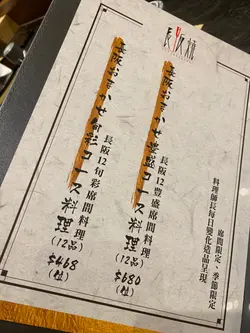 長阪橋
席間限定、季節限定
料理師長每日變化造品呈現
長阪おまかせ豊盛コース料理
(12品)
$680
(位)
長阪12豐盛席間料理
長阪おまかせ旬彩コース料理
(12品)
$468
(位)
長阪12旬彩席間料理